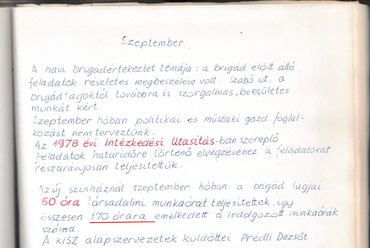 Szeptember.
A havi brigádértekezlet témája: a brigád előtt álló
feladatok részletes megbeszélése volt. Szabó et. a
brigádtagoktól továbbra is szorgalmas, becsületes
munkát kért.
Szeptember hóban politikai és műszaki gazd. foglal-
kozást nem terveztünk.
Az 1978 évi Intézkedési Utasítás-ban szereplő
feladatok határidőre történő elvégzéséhez a feladatokat
részarányosan teljesítettük.
Az új színháznál szeptember hóban a brigád tagjai
60 óra társadalmi munkaórát teljesítettek, így
összesen 170 órára emelkedett a ledolgozott munkaórák
száma.
A KISZ alapszervezetek küldöttei Predli Dezsőt